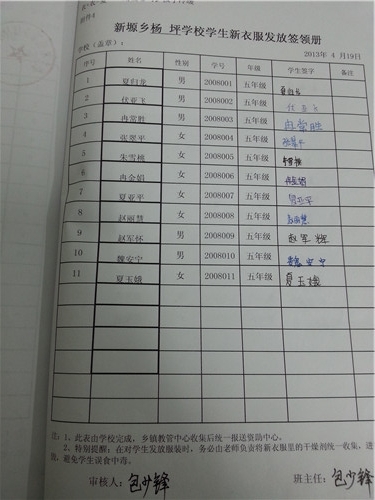 附件4
新塬乡杨 坪学校学生新衣服发放签领册
学校（盖章）： 2013年 4月19日
序号 姓名 性别 学号 年级 学生签字 备注
1 夏归龙 男 2008001 五年级 夏归龙
2 伏亚飞 男 2008002 五年级 伏亚飞
3 冉常胜 男 2008003 五年级 冉常胜
4 张翠平 女 2008004 五年级 张翠平
5 朱雪梅 女 2008005 五年级
6 冉金娟 女 2008006 五年级
7 夏亚平 女 2008007 五年级 夏亚平
8 赵丽慧 女 2008008 五年级 赵丽慧
9 赵军怀 男 2008009 五年级 赵军怀
10 魏安宁 男 2008010 五年级 魏安宁
11 夏玉娥 女 2008011 五年级 夏玉娥
注：1、此表由学校完成，乡镇教管中心收集后统一报送资助中心。
2、特别提醒：在对学生发放服装时，务必由老师负责将新衣服里的干燥剂统一收集，进
避免学生误食中毒。
审核人：包少锋 班主任：包少锋